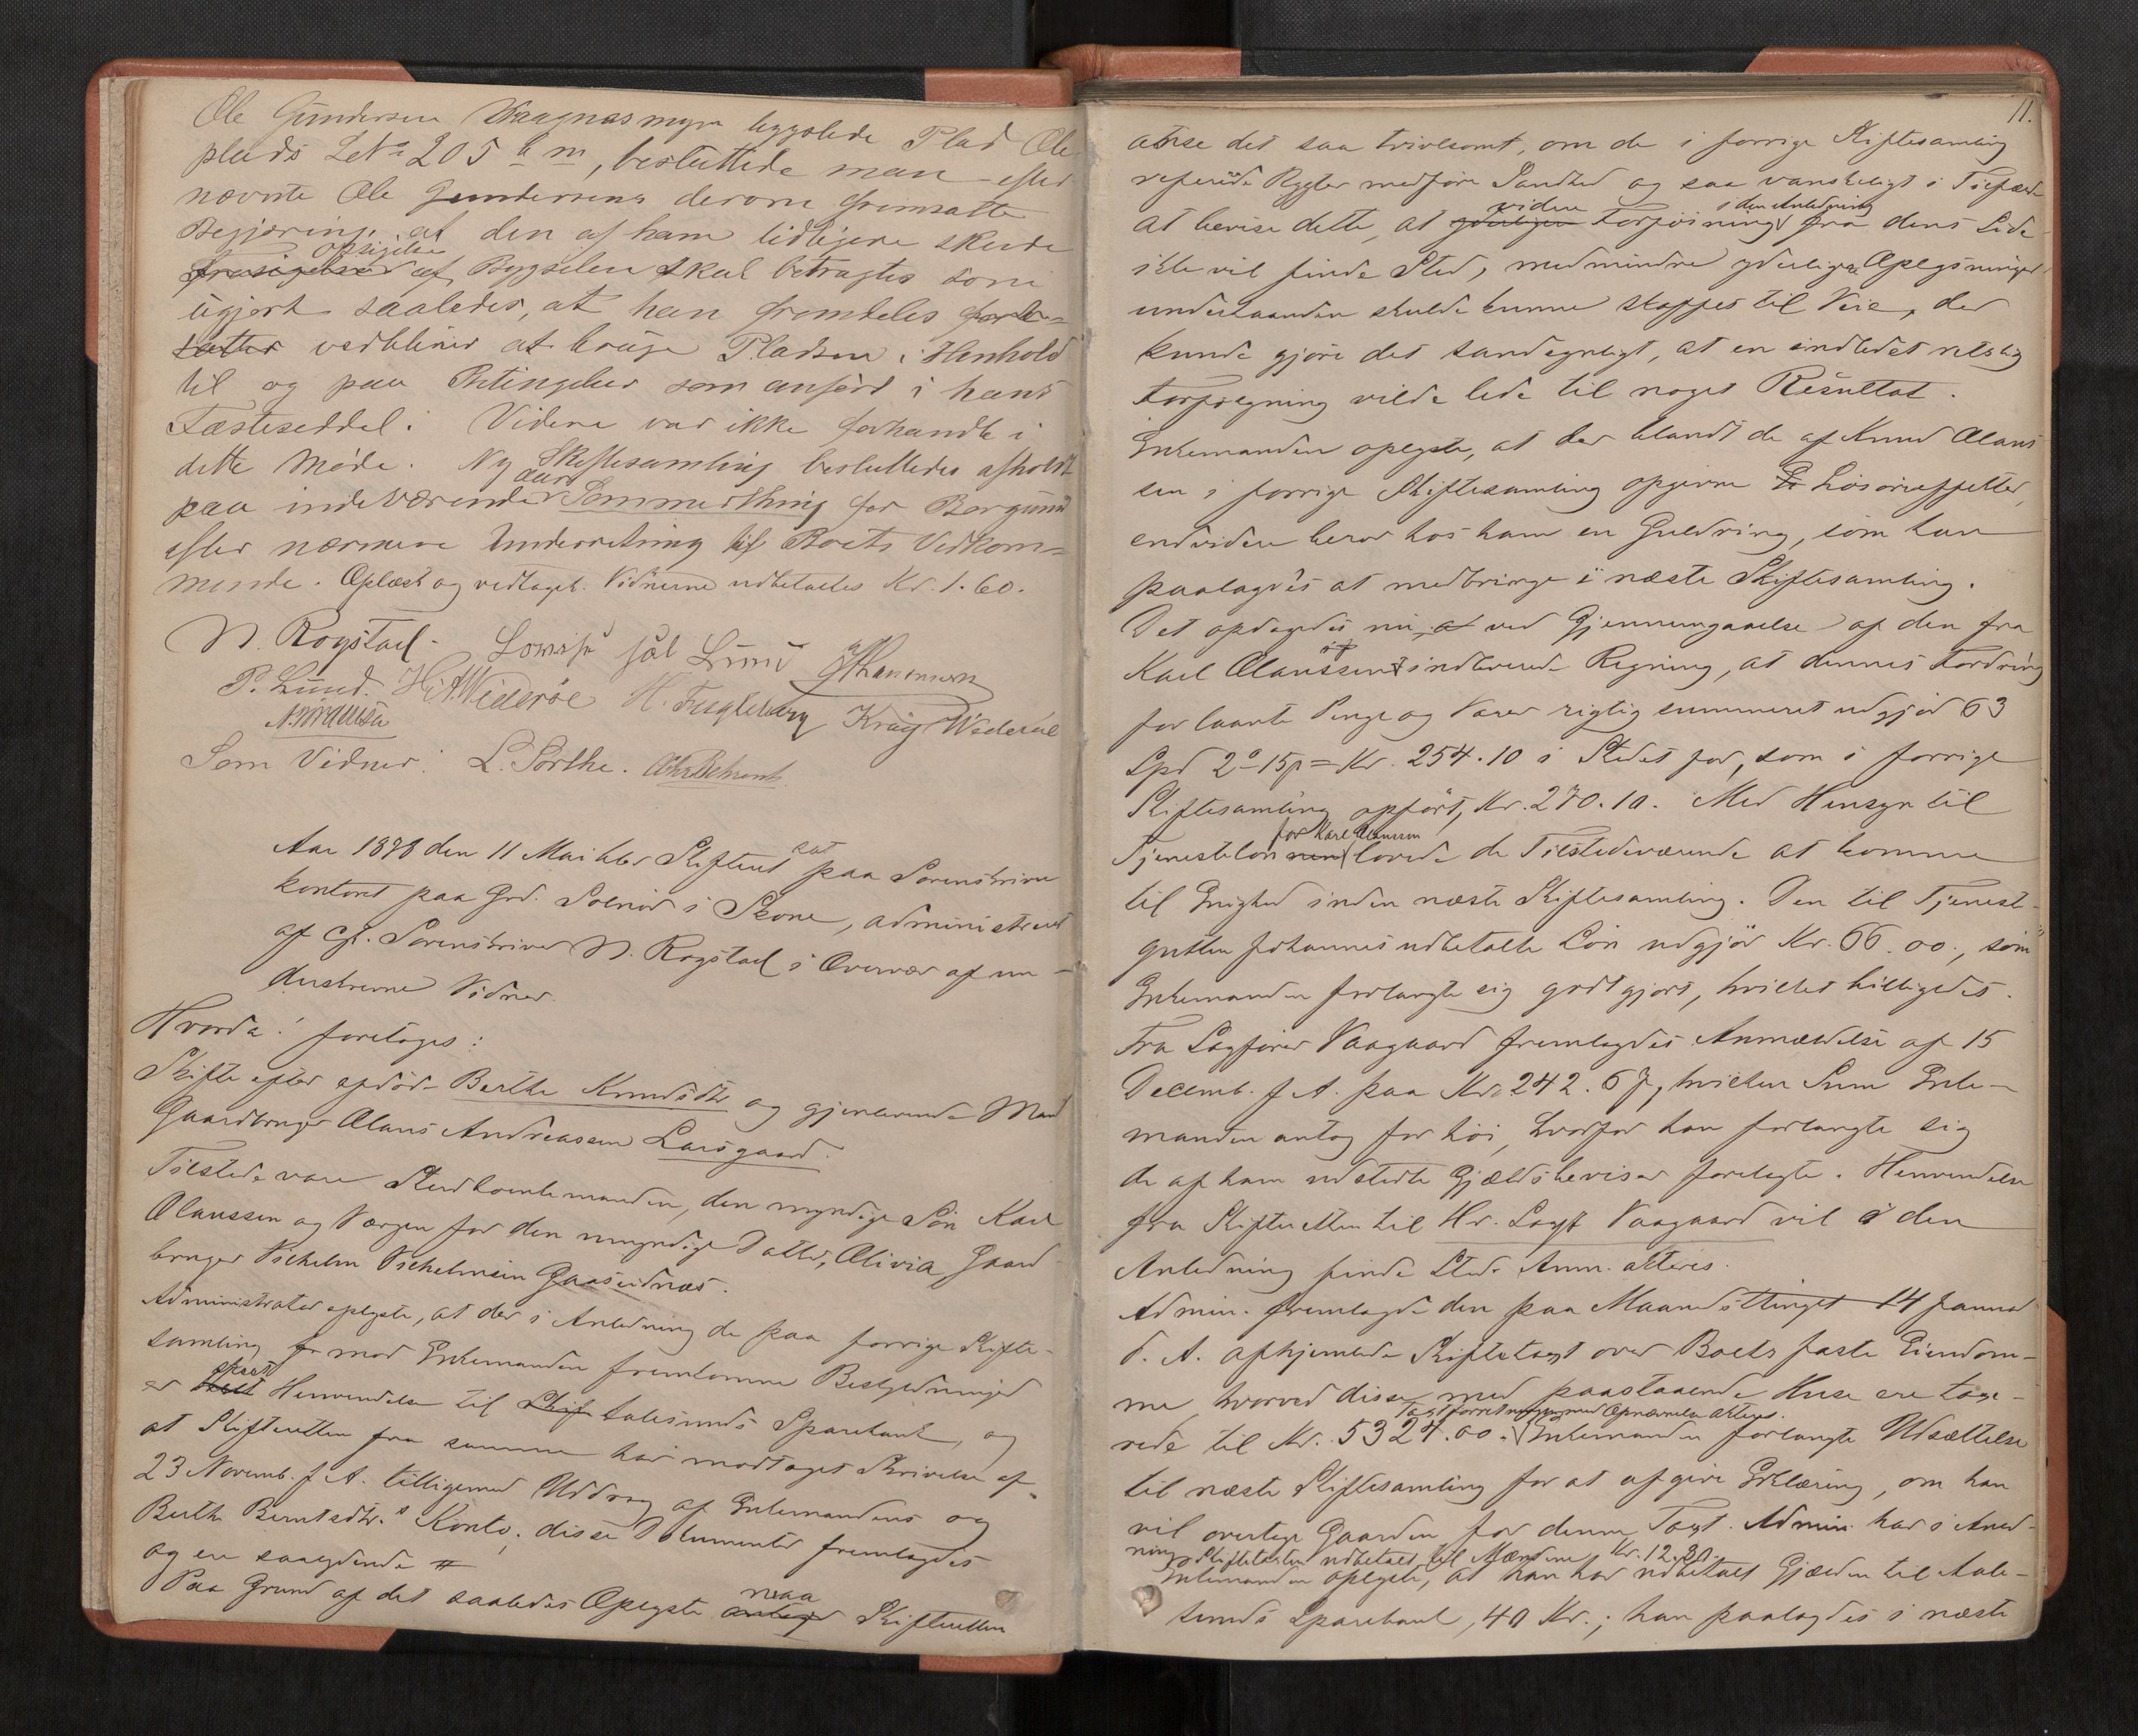 Ole Gundersen Waagnæsmyr byxlede Plad Ole
plads LNo 205 b m, besluttede man efter
nævnte Ole Gundersens derom fremsatte
Begjæring, at den af ham tidligere skede
opsigelse
af Bygselen skal betragtes som
ugjort saaledes, at han fremdeles
vedbliver at bruge Pladsen i Henhold
til og paa Betingelser som anført i hans
Fæsteseddel. Videre var ikke forhandle i
dette Møde. Ny Skiftesamling besluttedes afholdt
paa indeværende Aars Sommerthing for Borgund
efter nærmere Underretning til Boets Vedkom-
mende. Oplæst og vedtaget. Vidnerne udbetaltes Kr. 1.60.
N. Rogstad. Lovise sal Lund
P. Lund. H. A. Widerøe H. Fugleberg Krag Wedervel
Som Vidner: L. Sørthe.
Aar 1878 den 11 Mai blev Skifteret sat paa Sorenskriver
kontoret paa Grd. Solnør i Skone, administreret
af cst. Sorenskriver N. Rogstad i Overvær af un-
derskrevne Vidner.
Hvorda! foretoges:
Skifte efter afdøde Berthe Knudsdtr og gjenlevende Mand
Gaardbruger Olaus Andreassen Larsgaard.
Tilstede vare Sterboenkemanden, den myndige Søn Karl
Olaussen og Værgen for den umyndige Datter, Olivia, Gaard
bruger Vilhelm Vilhelmsen Gaaseidnæs.
Administrator oplyste, at der i Anledning de paa forrige Skifte-
samling mod Enkemanden fremkomne Beskyldninger
er skeet Henvendelse til Aalesunds Sparebank, og
at Skifteretten fra samme har modtaget Skrivelse af
23 Novemb. f. A. tilligemed Uddrag af Enkemandens og
Berthe Berntsdtr.s Konto; disse Dokumenter fremlagdes
og ere saalydende #
Paa Grund af det saaledes Oplyste maa Skifteretten
11.
ansee det saa tvivlsomt, om de i forrige Skiftesamling
refererede Rygter medføre Sandhed og saa vanskeligt i Tilfælde
at bevise dette, at videre Forføining i den Anledning fra dens Side
ikke vil finde Sted, medmindre yderligere Oplysninger
underhaanden skulde kunne skaffes til Veie, der
kunde gjøre det sandsynligt, at en indledet retslig
Forfølgning vilde lede til noget Resultat.
Enkemanden oplyste, at der blandt de af Knud Olaus
sen i forrige Skiftesamling opgivne Løsøreeffekter,
endvidere beror hos ham en Guldring, som han
paalagdes at medbringe i næste Skiftesamling.
Det opdagedes nu ved Gjennemgaaelse af den fra
Karl Olaussen indleverede Regning, at dennes Fordring
for laante Penge og Varer rigtig summeret udgjør 63
Spd 2 o 15 p = Kr. 254.10 i Stedet for, som i forrige
Skiftesamling opført, Kr. 270.10. Med Hensyn til
Tjenesteløn for Karl Olaussen lovede de Tilstedeværende at komme
til Enighed inden næste Skiftesamling. Den til Tjeneste-
gutten Johannes udbetalte Løn udgjør Kr. 66.00, som
Enkemanden forlangte sig godtgjort, hvilket billigedes.
Fra Sagfører Vaagaard fremlagdes Anmældelse af 15
Decemb. f. A. paa Kr. 242.67, hvilken Sum Enke-
manden antog for høi, hvorfor han forlangte sig
de af ham udstedte Gjældsbeviser forelagte. Henvendelse
fra Skifteretten til Hr. Sagf. Vaagaard vil i den
Anledning finde Sted. Anm. akteres.
Admin. fremlagde den paa Maanedsthinget 14 Januar
d. A. afhjemlede Skiftetaxt over Boets faste Eiendom-
me, hvorved disse med paastaaende Huse ere taxe-
rede til Kr. 5324.00. Taxtforretningen med Opnævnelse akteres. Enkemanden forlangte Udsættelse
til næste Skiftesamling for at afgive Erklæring, om han
vil overtage Gaarden for denne Taxt. Admin. har i Anled-
ning Skiftetaxten udbetalt til Mændene Kr. 12.30.
Enkemanden oplyste, at han har udbetalt Gjælden til Aale-
sunds Sparebank, 40 Kr.; han paalagdes i næste